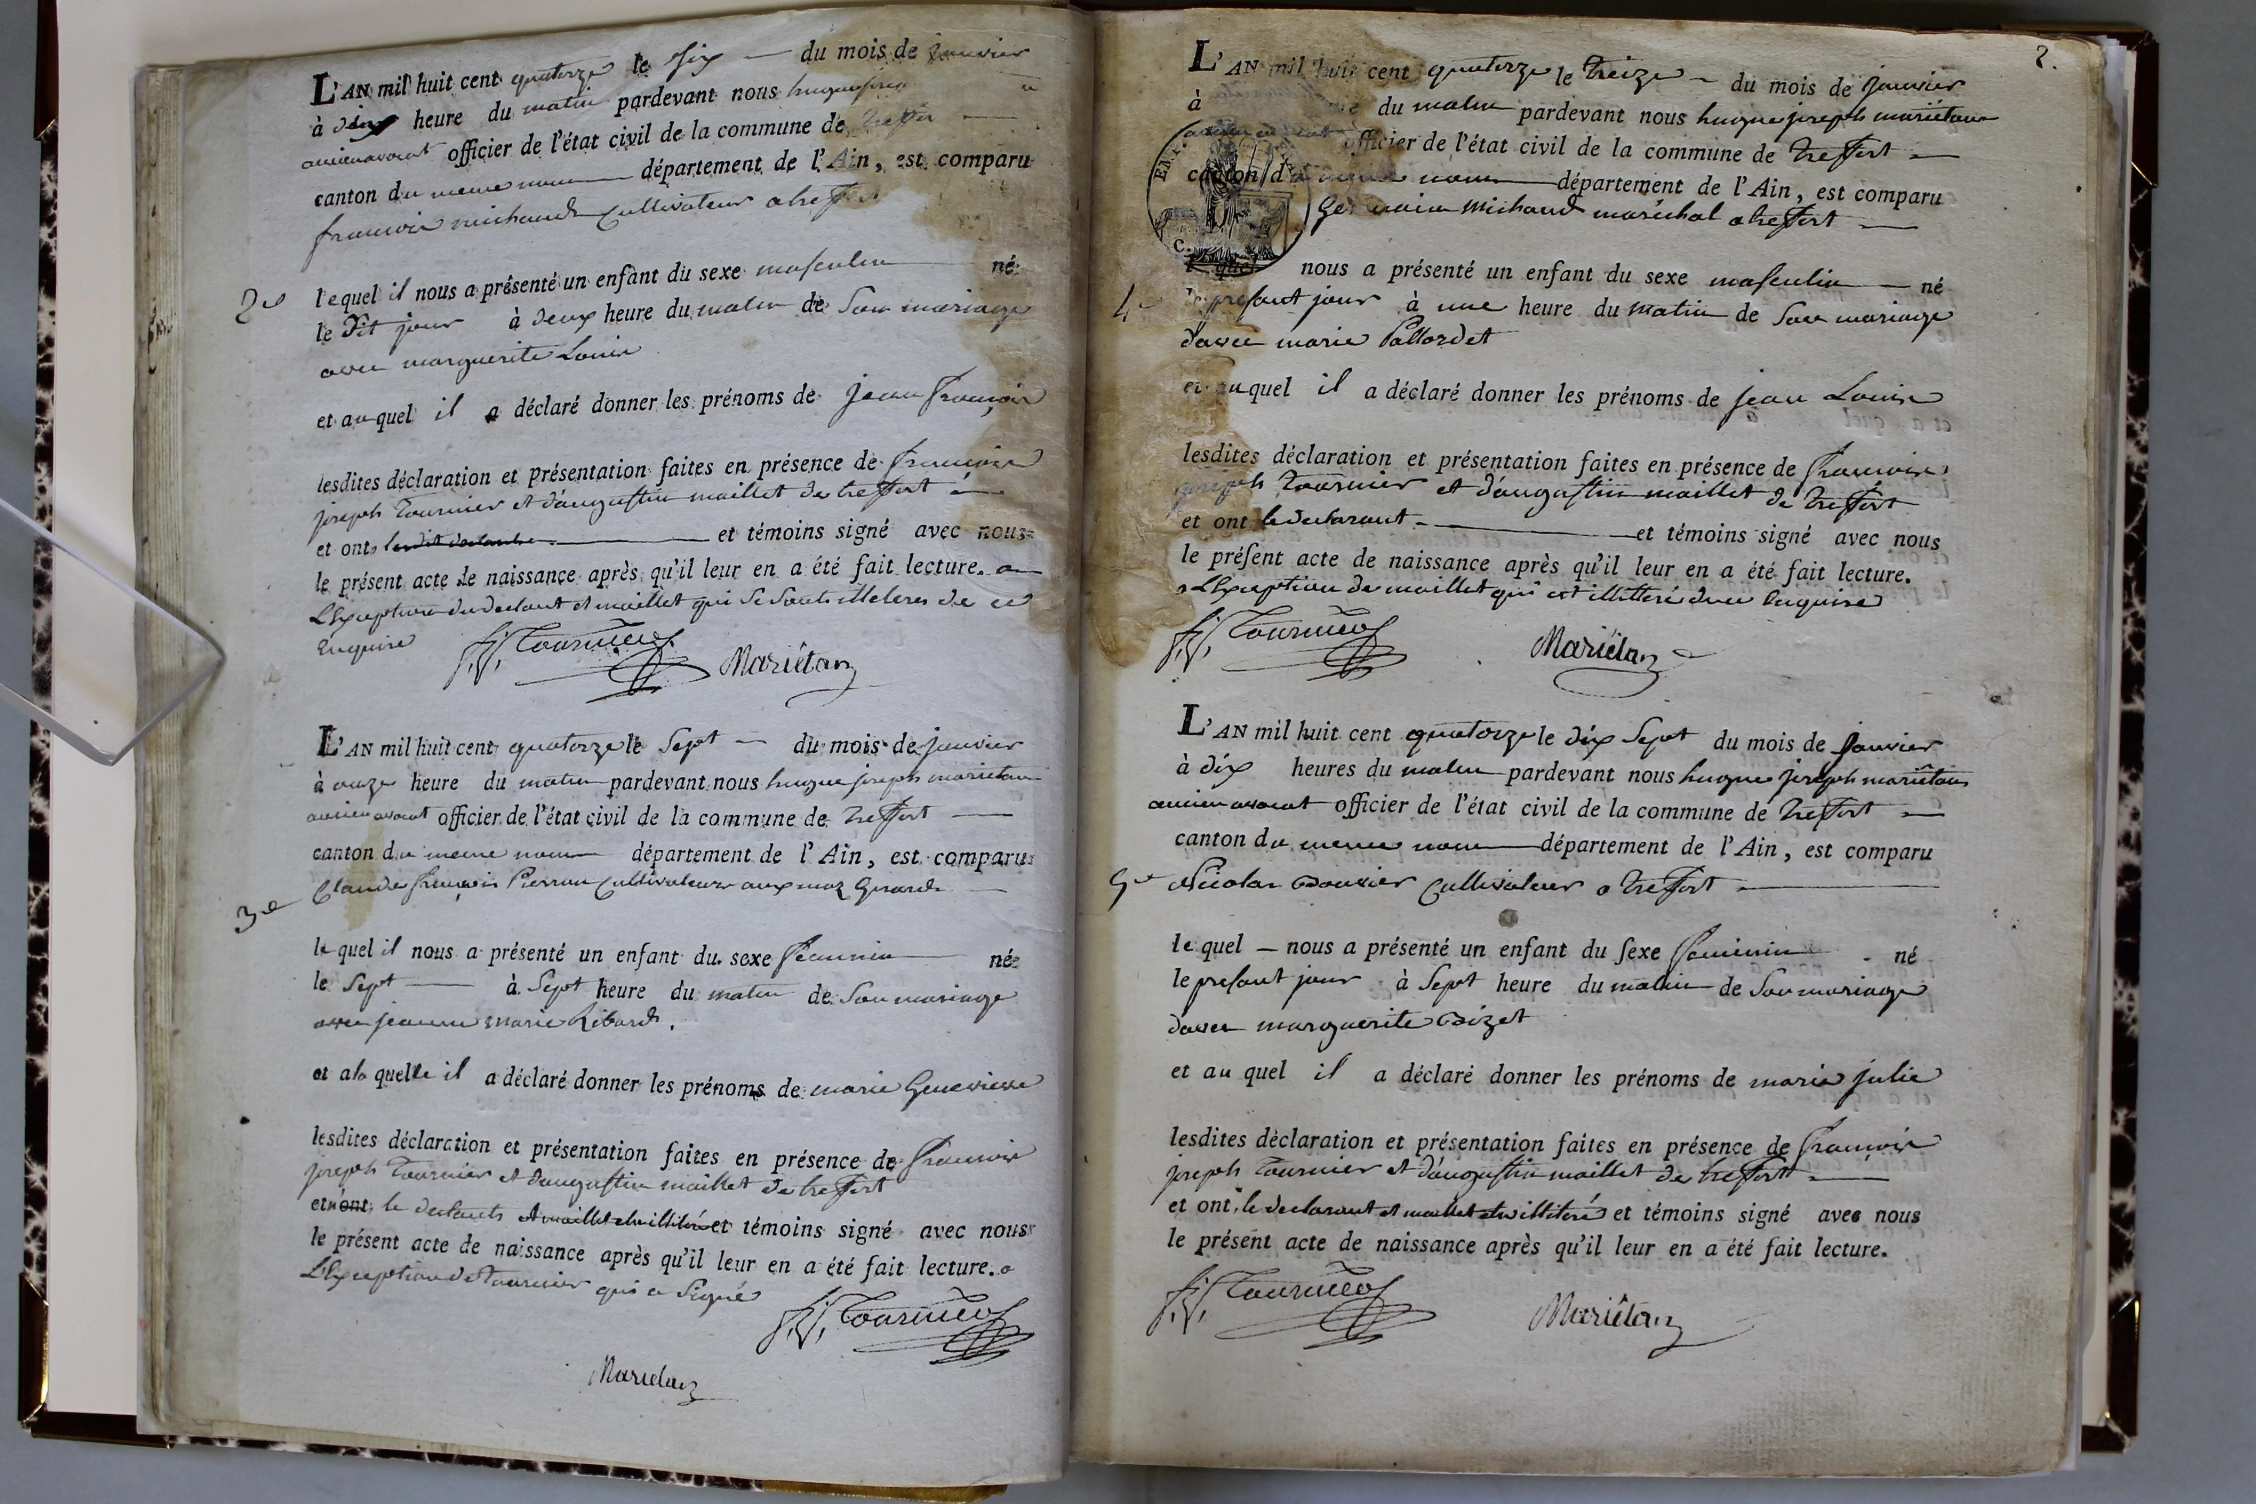 L'AN mil huit cent quatorze le six — du mois de janvier
à dix heure du matin pardevant nous hugue joseph
ancien avocat officier de l'état civil de la commune de treffort —
canton du meme nom — département de l'Ain, est comparu
francois michaud cultivateur a treffort
2e
lequel il nous a présenté un enfant du sexe masculin — né
le dit jour à deux heure du matin de son mariage
avec marguerite Louis
et au quel il a déclaré donner les prénoms de jean françois
lesdites déclaration et présentation faites en présence de francois
joseph Tournier et d'augustin maillet de treffort
et ont — et témoins signé avec nous
le présent acte de naissance après qu'il leur en a été fait lecture. a
L'Exception du et maillet qui se sont de ce
Enquire
f. j. Tournier
Mariétan
L'AN mil huit cent quatorze le Sept — du mois de janvier
à onze heure du matin pardevant nous hugue joseph mariétan
ancien avocat officier de l'état civil de la commune de treffort —
canton du meme nom département de l'Ain, est comparu
Claude françois Pierron cultivateur aux maz Girard —
3e
le quel il nous a présenté un enfant du sexe féminin — né
le Sept — à Sept heure du matin de son mariage
avec jeanne marie Ribard.
et a la quelle il a déclaré donner les prénoms de marie Genevieve
lesdites déclaration et présentation faites en présence de francois
joseph Tournier et d'augustin maillet de treffort
et ont le et maillet et témoins signé avec nous
le présent acte de naissance après qu'il leur en a été fait lecture. a
L'Exception de Tournier qui a Signé
f. j. Tournier
Mariétan
2.
L'AN mil huit cent quatorze le treize — du mois de janvier
à du matin pardevant nous hugue joseph mariétan
officier de l'état civil de la commune de treffort —
canton du meme nom — département de l'Ain, est comparu
Germain Michaud maréchal a treffort —
4e
le quel nous a présenté un enfant du sexe masculin — né
le présant jour à une heure du matin de son mariage
d'avec marie Pallordet
et au quel il a déclaré donner les prénoms de jean Louis
lesdites déclaration et présentation faites en présence de francois
joseph Tournier et d'augustin maillet de treffort
et ont le declarant — et témoins signé avec nous
le présent acte de naissance après qu'il leur en a été fait lecture.
a L'Exception de maillet qui est illitteré Enquire
f. j. Tournier
Mariétan
L'AN mil huit cent quatorze le dix Sept du mois de janvier
à dix heures du matin pardevant nous hugue joseph mariétan
ancien avocat officier de l'état civil de la commune de treffort —
canton du meme nom — département de l'Ain, est comparu
5e
Nicolas Bouvier cultivateur a treffort —
le quel — nous a présenté un enfant du sexe féminin né
le présant jour à Sept heure du matin de Son mariage
d'avec marguerite Boizet
et au quel il a déclaré donner les prénoms de marie julie
lesdites déclaration et présentation faites en présence de francois
joseph Tournier et d'augustin maillet de treffort —
et ont, le declarant et maillet illiteré et témoins signé avec nous
le présent acte de naissance après qu'il leur en a été fait lecture.
f. j. Tournier
Mariétan